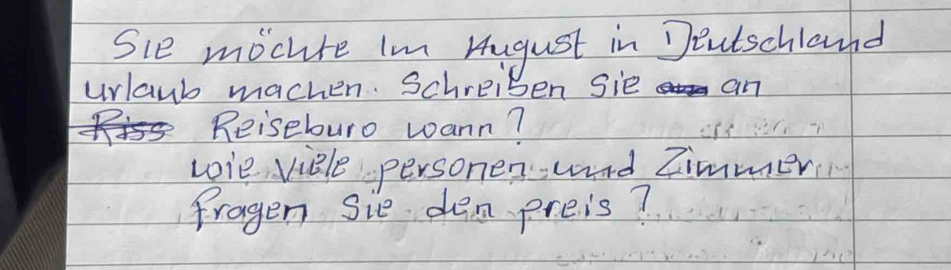 Sie möchte Im August in Deutschland
urlaub machen. Schreiben Sie an
Reiseburo wann?
wie viele personen und Zimmer
fragen Sie den preis?